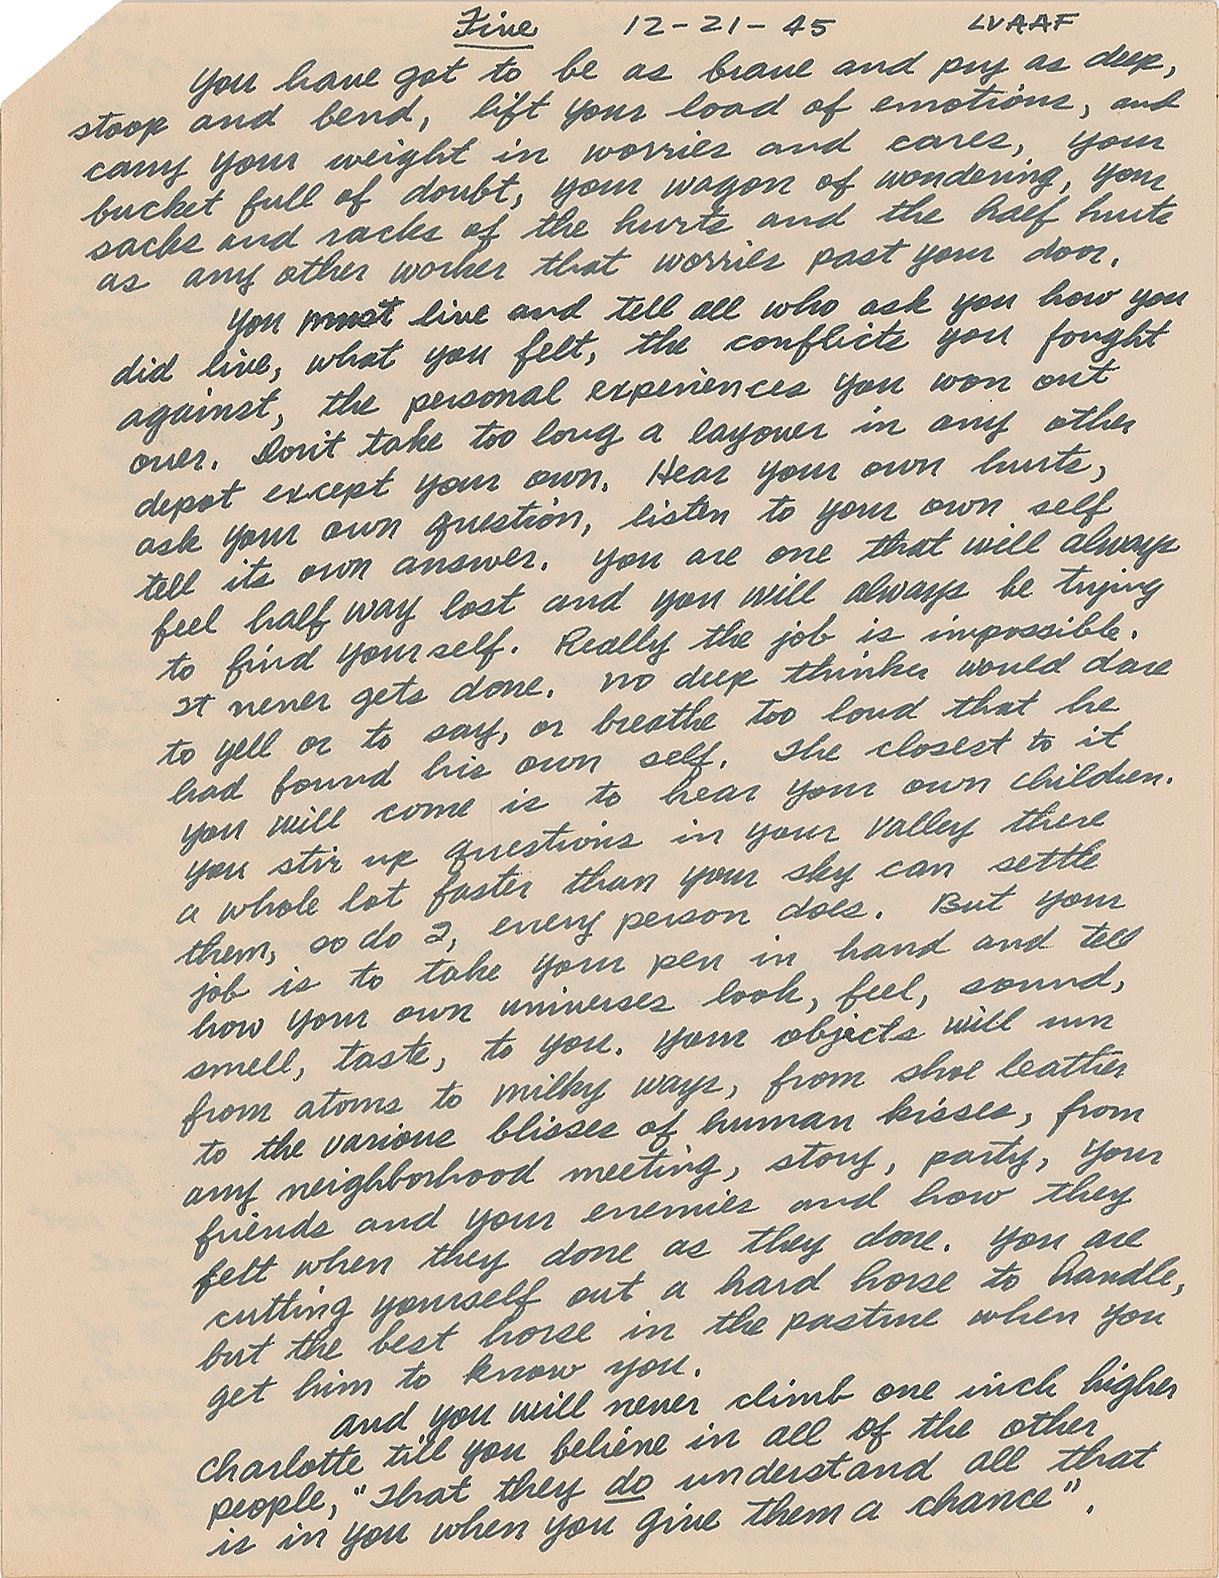 Five 12-21-45 LVAAF
You have got to be as brave and pry as deep,
stoop and bend, lift your load of emotions, and
carry your weight in worries and cares, your
bucket full of doubt, your wagon of wondering, your
sacks and racks of the hurts and the half hurts
as any other worker that worries past your door.
You must live and tell all who ask you how you
did live, what you felt, the conflicts you fought
against, the personal experiences you won out
over. Don't take too long a layover in any other
depot except your own. Hear your own hurts,
ask your own question, listen to your own self
tell its own answer. You are one that will always
feel half way lost and you will always be trying
to find yourself. Really the job is impossible.
It never gets done. No deep thinker would dare
to yell or to say, or breathe too loud that he
had found his own self. The closest to it
you will come is to hear your own children.
You stir up questions in your valley there
a whole lot faster than your sky can settle
them, so do I, every person does. But your
job is to take your pen in hand and tell
how your own universes look, feel, sound,
smell, taste, to you. Your objects will run
from atoms to milky ways, from shoe leather
to the various blisses of human kisses, from
any neighborhood meeting, story, party, your
friends and your enemies and how they
felt when they done as they done. You are
cutting yourself out a hard horse to handle,
but the best horse in the pasture when you
get him to know you.
And you will never climb one inch higher
Charlotte till you believe in all of the other
people, "That they do understand all that
is in you when you give them a chance".